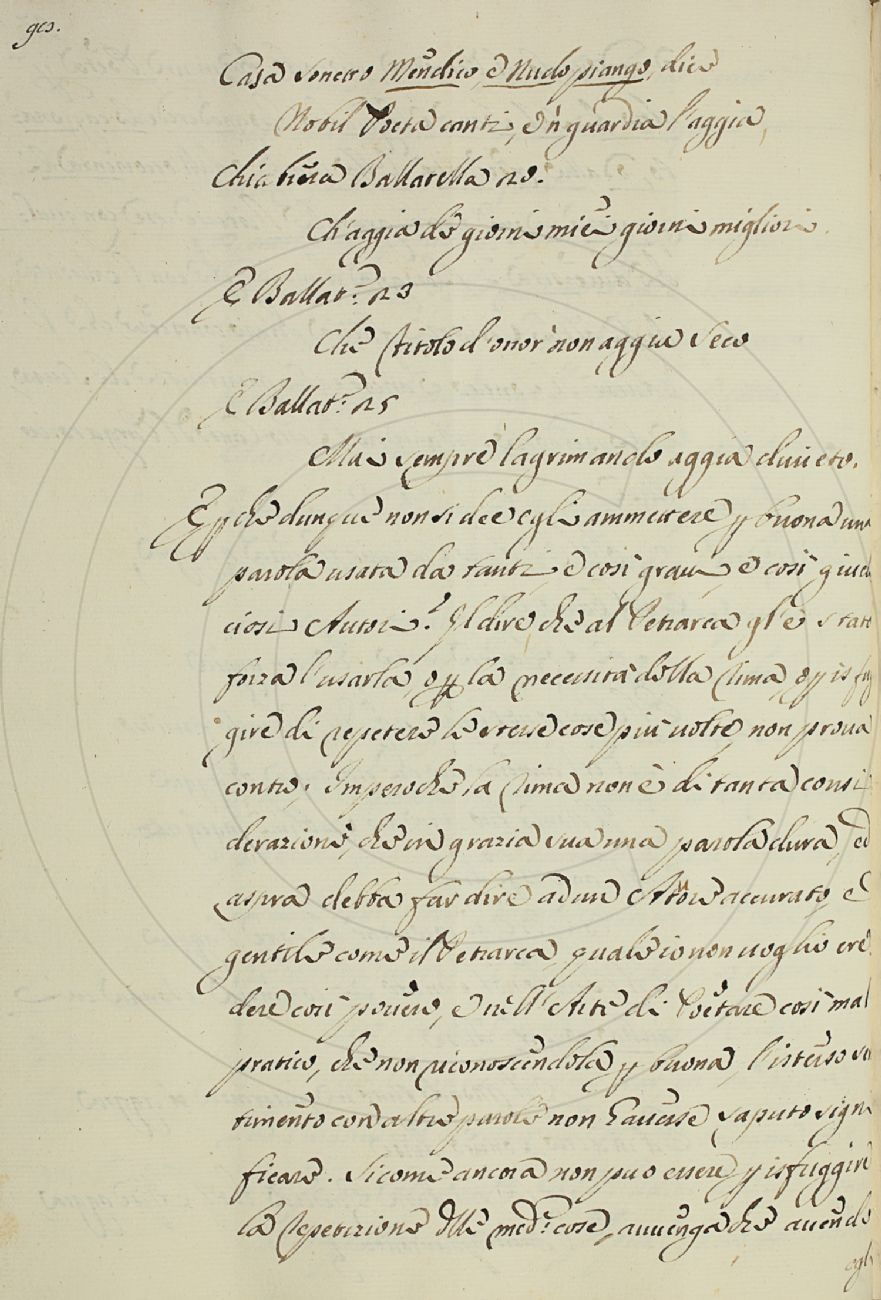 Casa Sonetto Mendico, e Nudo piango, dice
Nobil Poeta canti, e 'n guardia l'aggia,
Chiabrera Ballatella 20.
Ch'aggia de giorni miei giorni migliori.
E Ballat.ª 23
Che titolo d'onor non aggia seco
E Ballat.ª 25
Mai sempre lagrimando aggia divieto.
E pche dunque non si dee egli ammettere p buona una
parola usata da tanti, e così gravi, e così giudi
ciosi Autori? Il dire, che al Petrarca gl'è stata
forza l'usarla, o p la necessità della rima, o p isfug
gire di repetere le stesse cose più volte, non prova
contro; Imperoche la rima non è di tanta consi
derazione, che in grazia sua una parola dura, ed
aspra debba far dire ad un Autore accurato, e
gentile come il Petrarca, quale io non voglio cre
dere così povero, e nell'Arte di Poetare così mal
pratico, che non riconoscendola p buona, l'istesso sen
timento con altre parole non havesse saputo signi
ficare. Sicome ancora non può essere p isfuggire
la repetizione dlle med.ᵉ cose, avvenga che avendo
egli